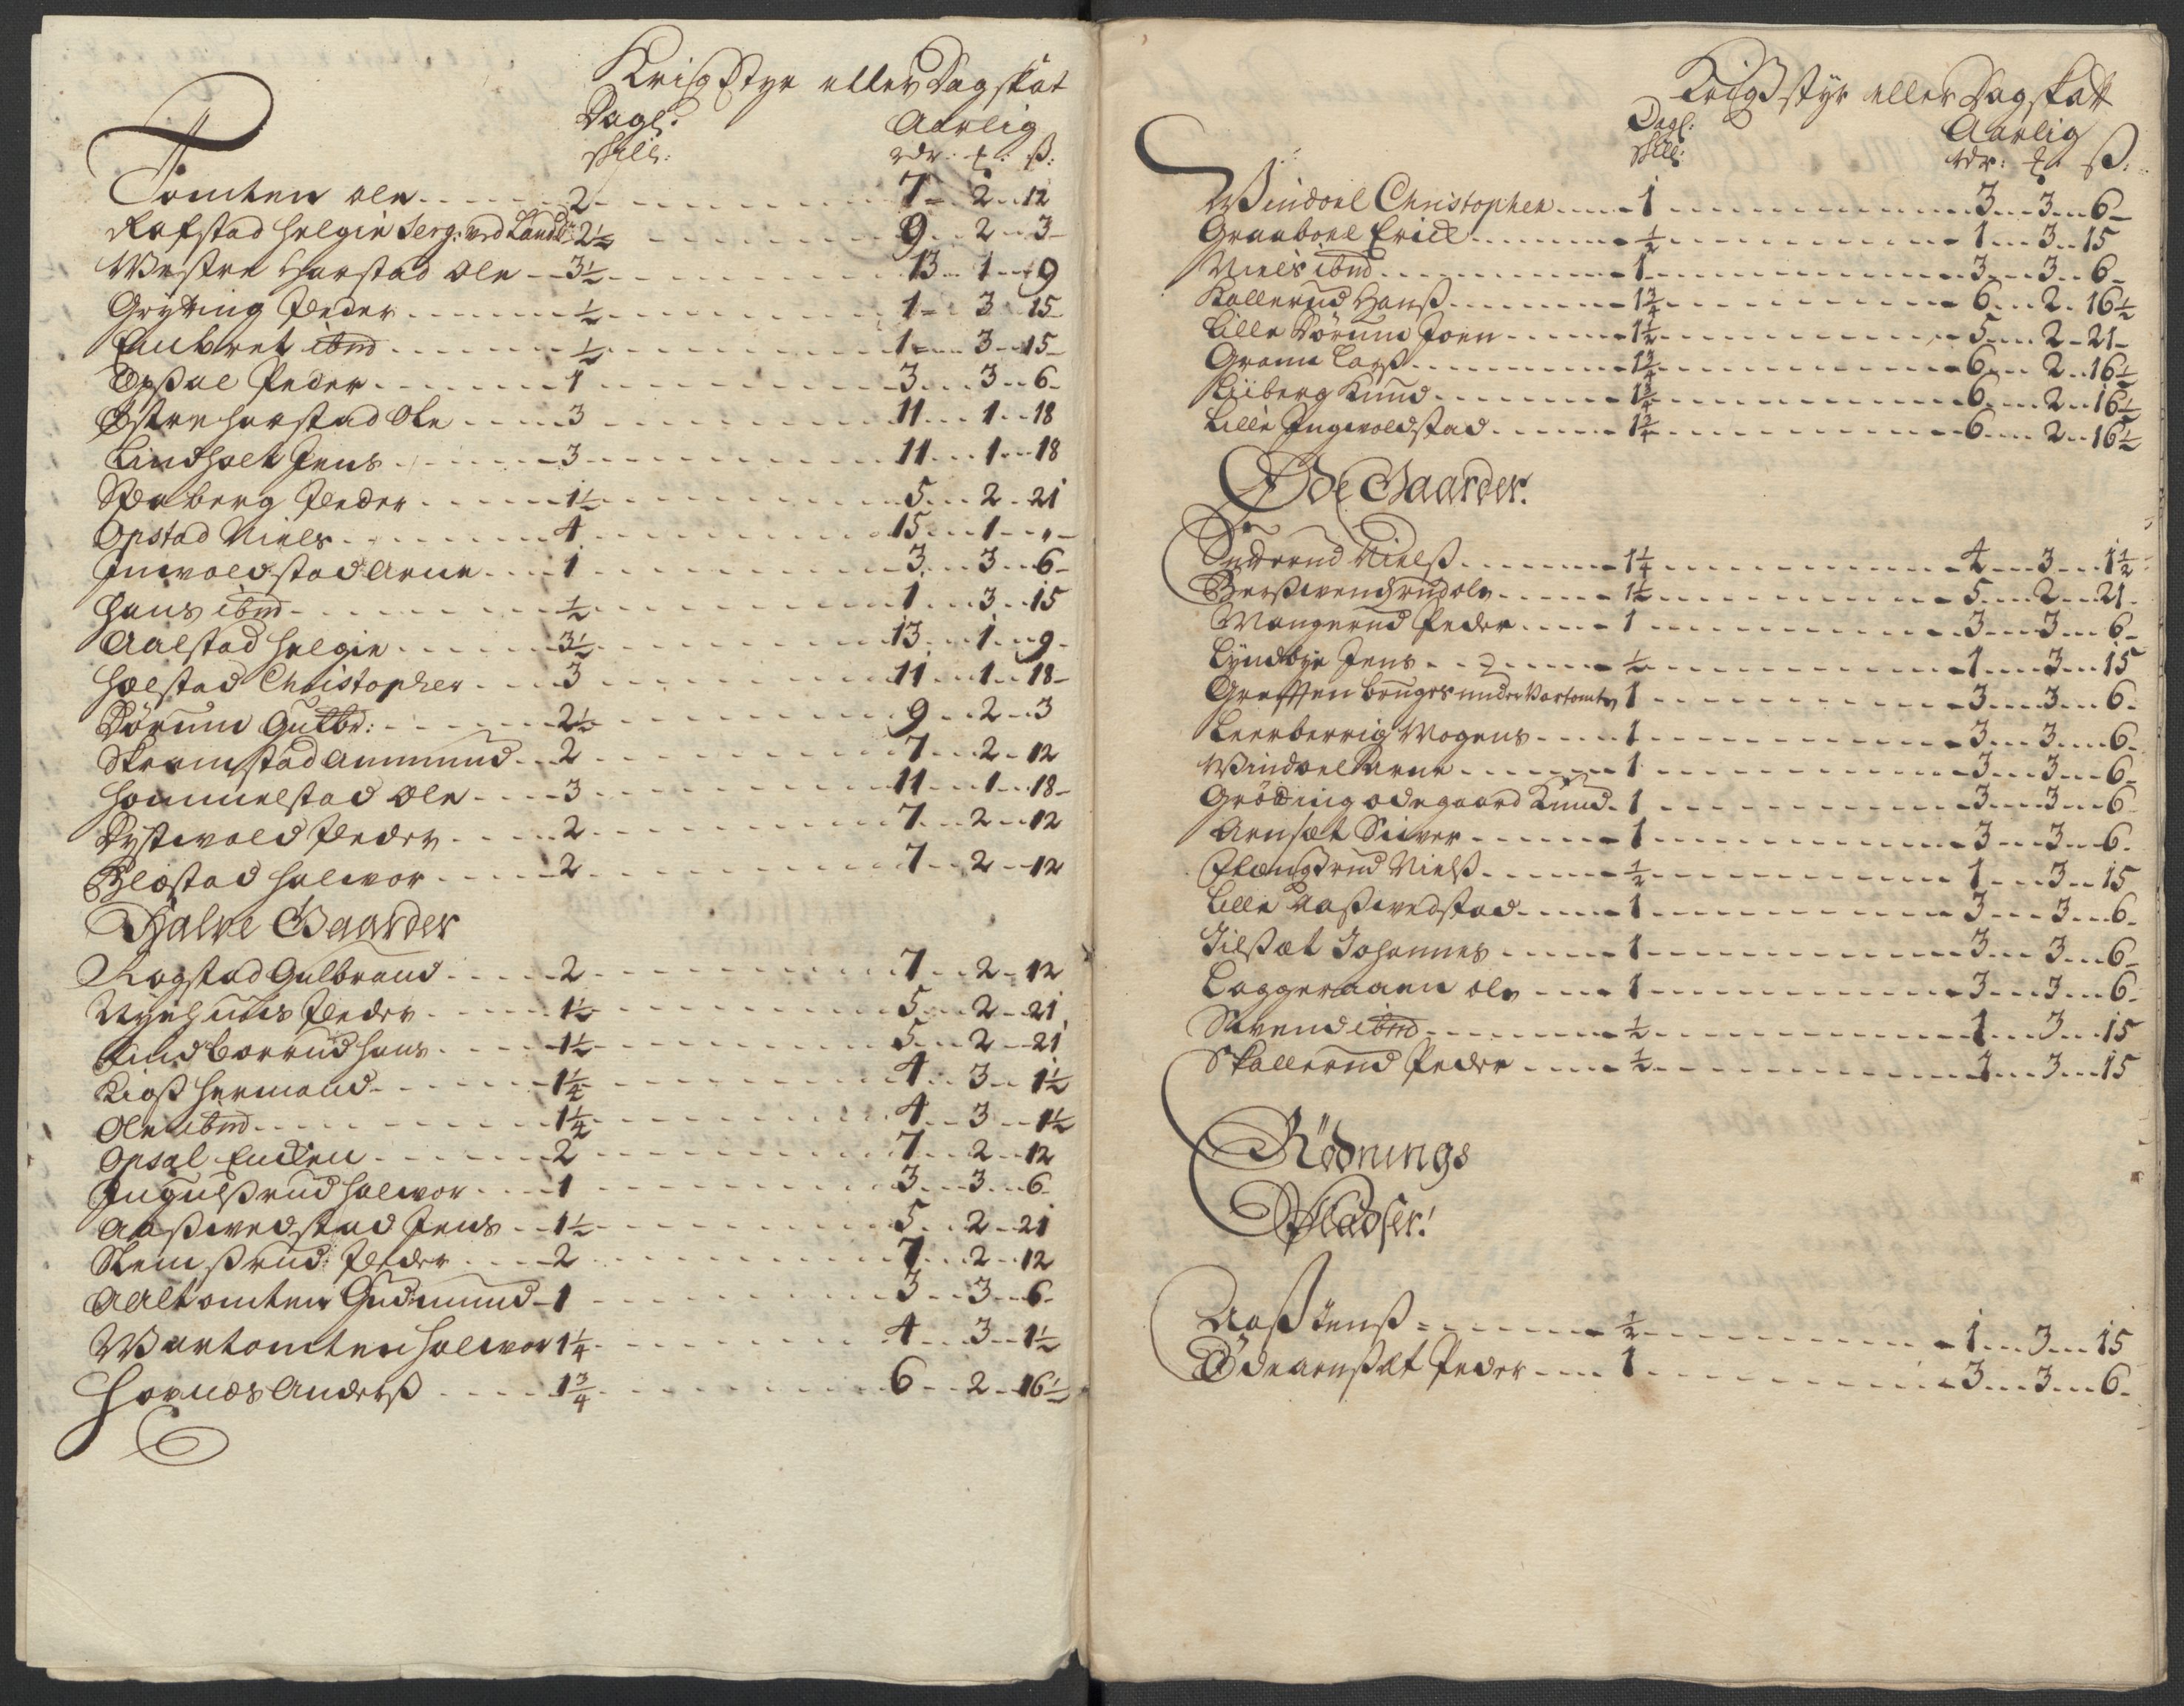 Krigs Styr eller Dagskat
Dagl: Aarlig
skill: rdr: ß:
Tomten Ole 2 7 2 12
Rafstad Helgie Serg: ved Landt 2½ 9 2 3
Westre Harstad Ole 3½ 13 1 9
Gryting Peder ½ 1 3 15
Embret ibnd ½ 1 3 15
Opsal Peder 1 3 3 6
Østre Harstad Ole 3 11 1 18
Lindholt Jens 3 11 1 18
Skaberg Peder 1½ 5 2 21
Opstad Niels 4 15 1 "
Inwoldstad Arne 1 3 3 6
Hans ibnd ½ 1 3 15
Aalstad Helgie 3½ 13 1 9
Holstad Christopher 3 11 1 18
Dörum Gulbr: 2½ 9 2 3
Skramstad Ammund 2 7 2 12
Hommelstad Ole 3 11 1 18
Dystwold Peder 2 7 2 12
Blæstad Halwor 2 7 2 12
Halve Gaarder
Rogstad Gulbrand 2 7 2 12
Nyehuus Peder 1½ 5 2 21
Lindbærrud Hans 1½ 5 2 21
Kioß Hermand 1¼ 4 3 1½
Ole ibnd 1¼ 4 3 1½
Opsal Encken 2 7 2 12
Ingulßrud Halwor 1 3 3 6
Aaßwedstad Jens 1½ 5 2 21
Skenßrud Peder 2 7 2 12
Aaltomten Gudmund 1 3 3 6
Wartomten Halwor 1¼ 4 3 1½
Hornæs Anderß 1¾ 6 2 16½
Krigs Styr eller Dagskatt
Dagl: Aarlig
skill: rdr: ß:
Windoel Christopher 1 3 3 6
Graaboel Erick ½ 1 3 15
Niels ibnd 1 3 3 6
Kallerud Hanß 1¾ 6 2 16½
Lille Dörum Joen 1½ 5 2 21
Gram Larß 1¾ 6 2 16½
Kiiberg Knud 1¾ 6 2 16½
Lille Ingwoldstad 1¾ 6 2 16½
Øde Gaarder.
Inderud Nielß 1¼ 4 3 1½
Berßwendrud Ole 1½ 5 2 21
Mangerud Peder 1 3 3 6
Lyndbye Jens ½ 1 3 15
Greffen bruges under Vartomten 1 3 3 6
Leerberrig Mogens 1 3 3 6
Windoel Arne 1 3 3 6
Gröding Ødegaard Knud 1 3 3 6
Arnset Siver 1 3 3 6
Flængsrud Nielß ½ 1 3 15
Lille Aaßwedstad 1 3 3 6
Jilsæt Johannes 1 3 3 6
Laggeraaen Ole 1 3 3 6
Svend ibnd ½ 1 3 15
Skallerud Peder ½ 1 3 15
Rödnings
Pladser:
Aaß Jenß ½ 1 3 15
Øde Arnsæt Peder 1 3 3 6